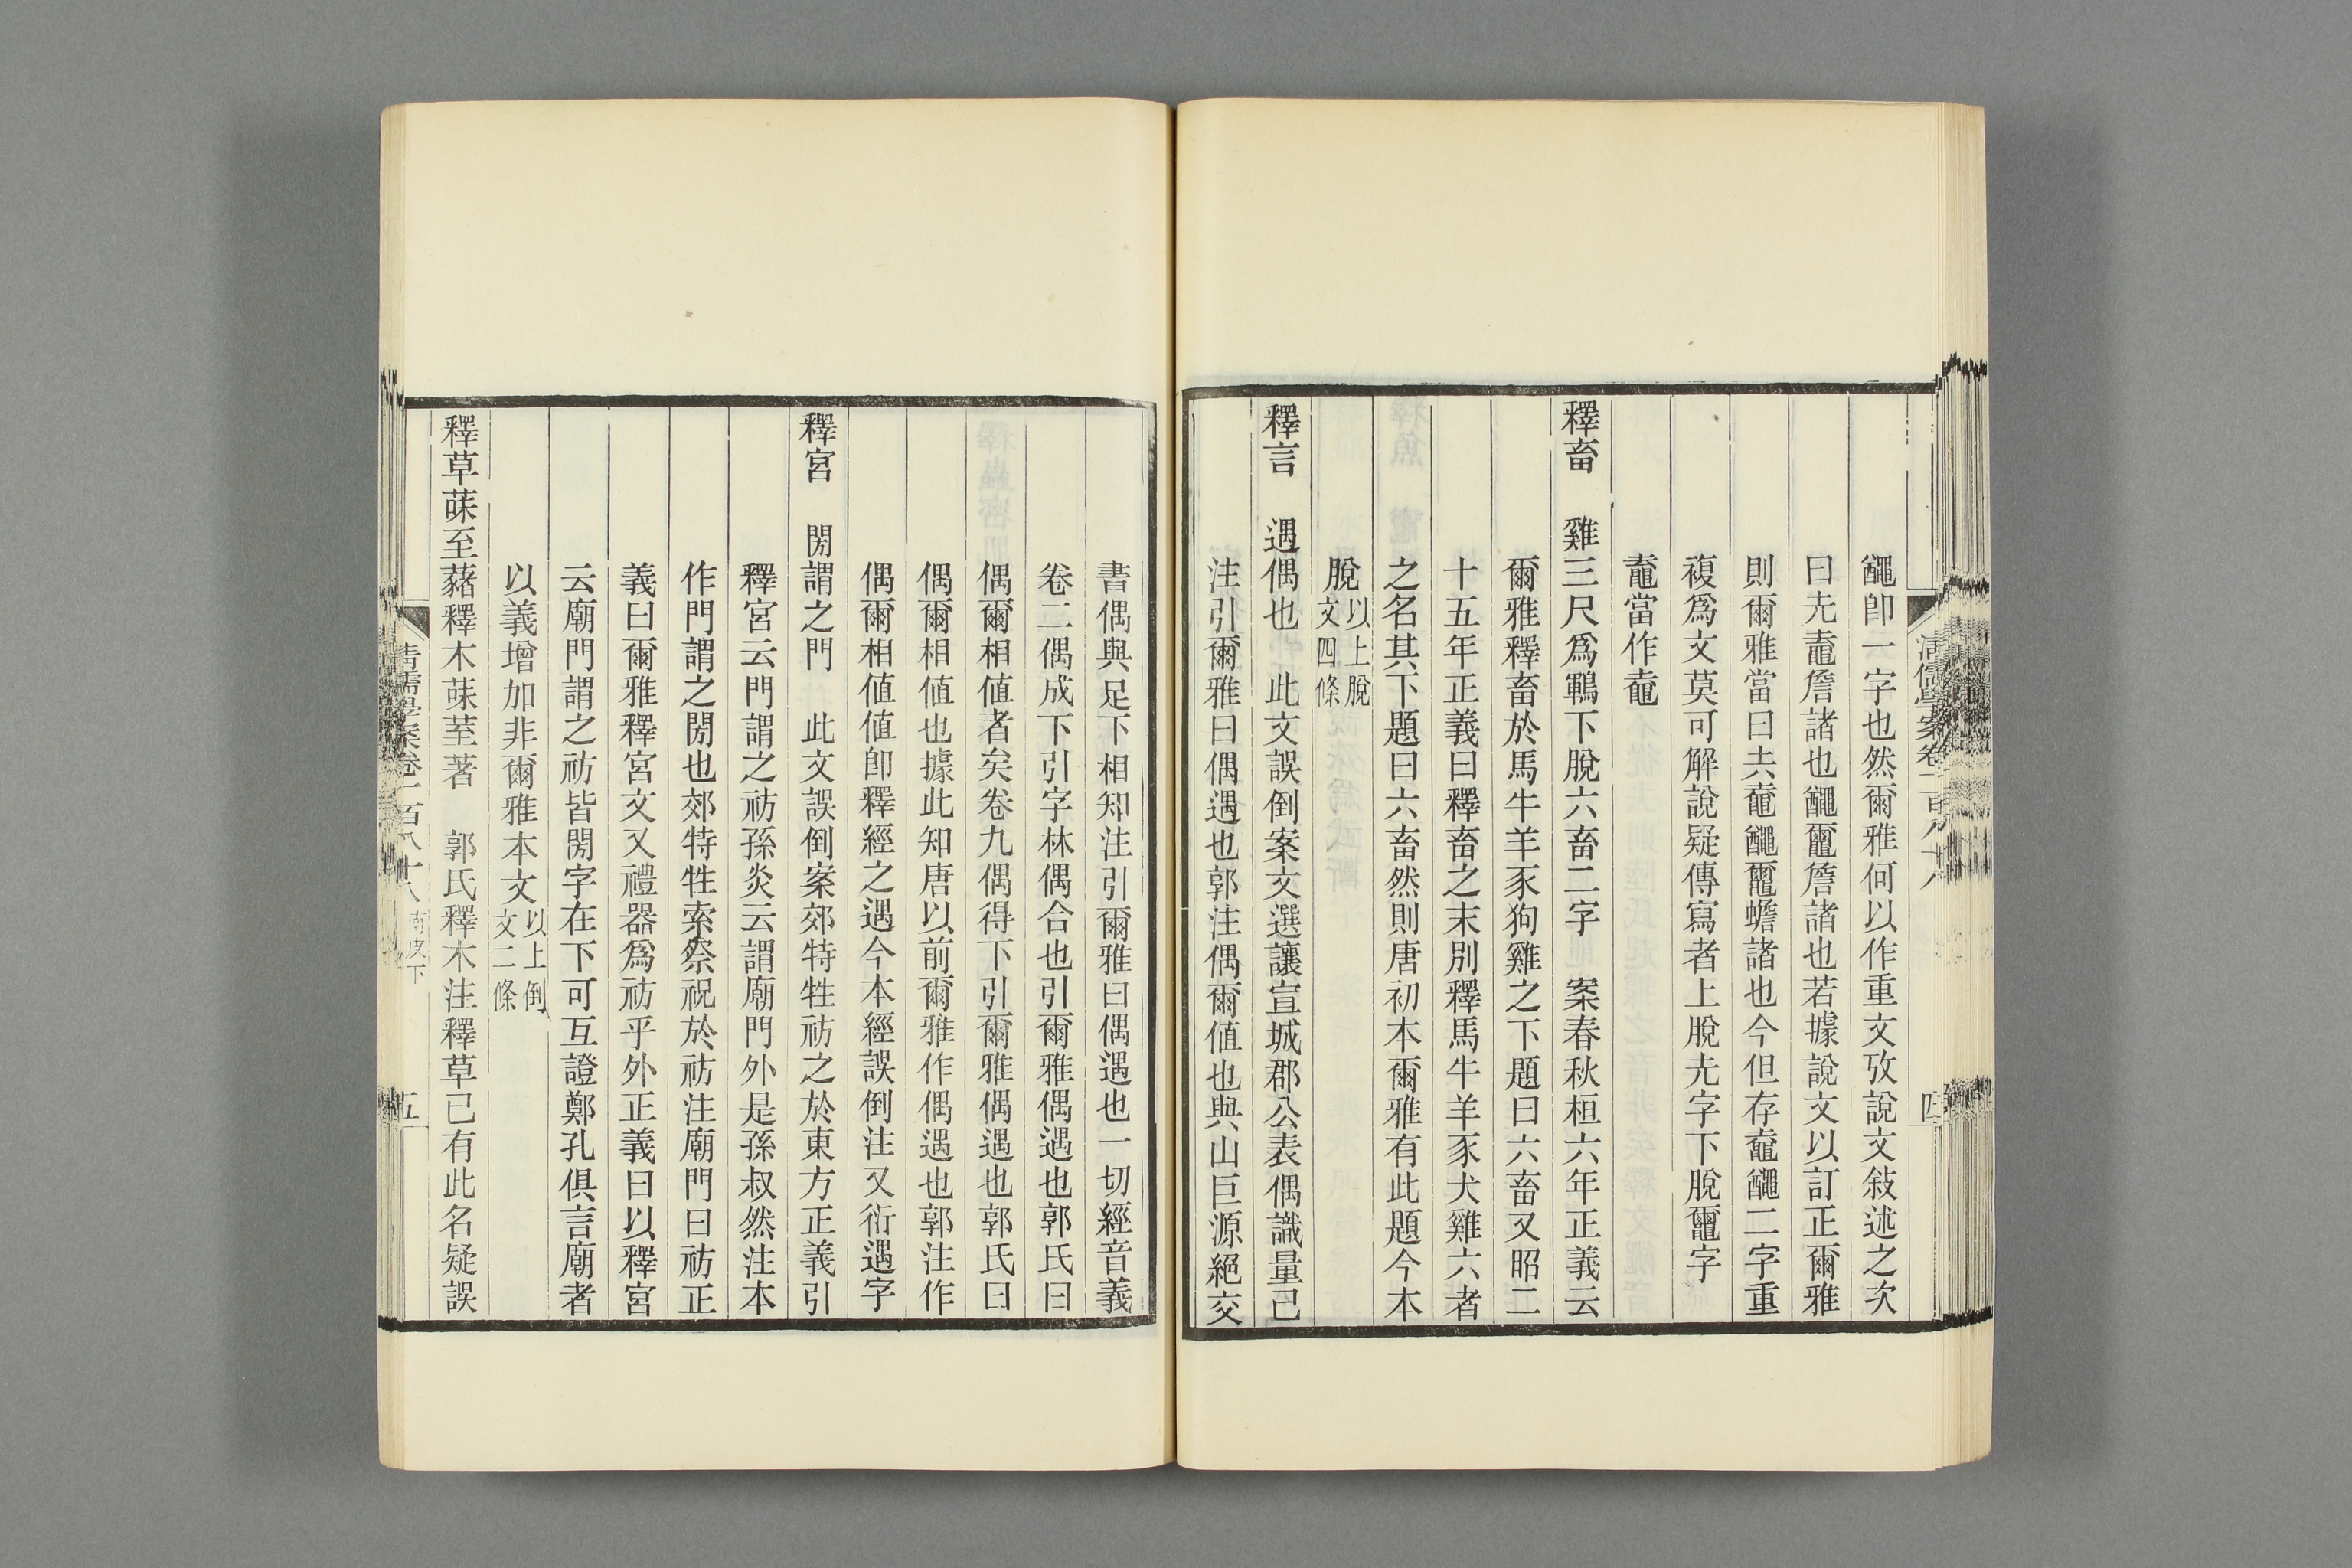 卽一字也然爾雅何以作重文攷說文敍述之次
曰圥鼀詹諸也䵶鼁詹諸也若據說文以訂正爾雅
則爾雅當曰𠫤鼀䵶鼁蟾諸也今但存鼀䵶二字重
複爲文莫可解說疑傳寫者上脫圥字下脫鼁字
鼀當作鼀
釋畜 雞三尺爲鶤下脫六畜二字 案春秋桓六年正義云
爾雅釋畜於馬牛羊豕狗雞之下題曰六畜又昭二
十五年正義曰釋畜之末別釋馬牛羊豕犬雞六者
之名其下題曰六畜然則唐初本爾雅有此題今本
脫以上脫文四條
釋言 遇偶也 此文誤倒案文選讓宣城郡公表偶識量己
注引爾雅曰偶遇也郭注偶爾値也與山巨源絕交
清儒學案卷一百八十八
四
書偶與足下相知注引爾雅曰偶遇也一切經音義
卷二偶成下引字林偶合也引爾雅偶遇也郭氏曰
偶爾相値者矣卷九偶得下引爾雅偶遇也郭氏曰
偶爾相値也據此知唐以前爾雅作偶遇也郭注作
偶爾相値値卽釋經之遇今本經誤倒注又衍遇字
釋宮 閍謂之門 此文誤倒案郊特牲祊之於東方正義引
釋宮云門謂之祊孫炎云謂廟門外是孫叔然注本
作門謂之閍也郊特牲索祭祝於祊注廟門曰祊正
義曰爾雅釋宮文又禮器爲祊乎外正義曰以釋宮
云廟門謂之祊皆閍字在下可互證鄭孔俱言廟者
以義增加非爾雅本文以上倒文二條
釋草菋荎藸釋木菋荎著 郭氏釋木注釋草已有此名疑誤
清儒學案卷一百八十八 南皮下
五